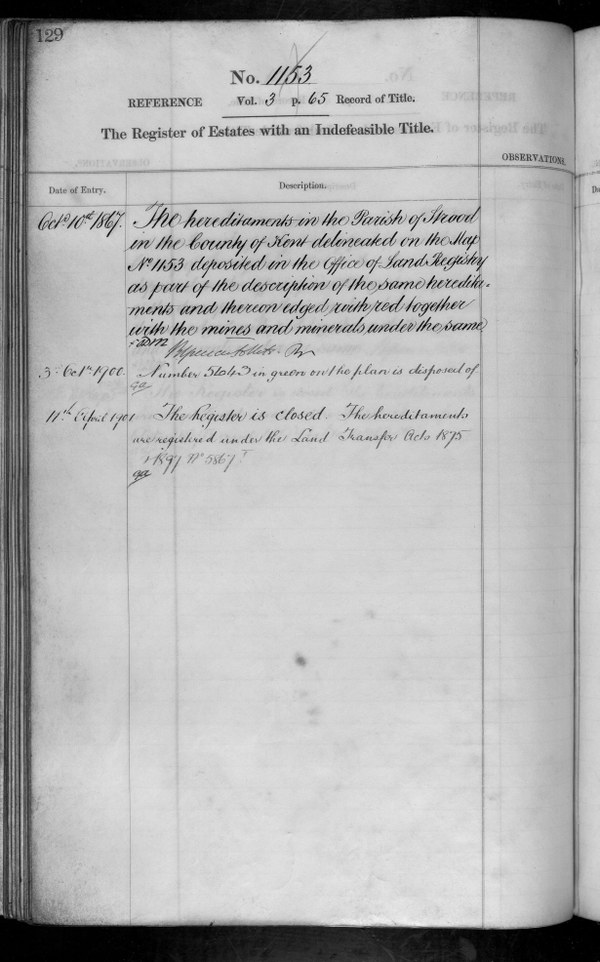 129
No. 1153
REFERENCE Vol. 3 p. 65 Record of Title.
The Register of Estates with an Indefeasible Title.
OBSERVATIONS.
Date of Entry.
Description.
Octr. 10th 1867. The hereditaments in the Parish of Strood
in the County of Kent delineated on the Map
No. 1153 deposited in the Office of Land Registry
as part of the description of the same heredita-
ments and thereon edged with red together
with the mines and minerals under the same
3rd Octr. 1900. Number 5643 in green on the plan is disposed of.
11th April 1901 The Register is closed The hereditaments
are registered under the Land Transfer Acts 1875
& 1897 No. 5867